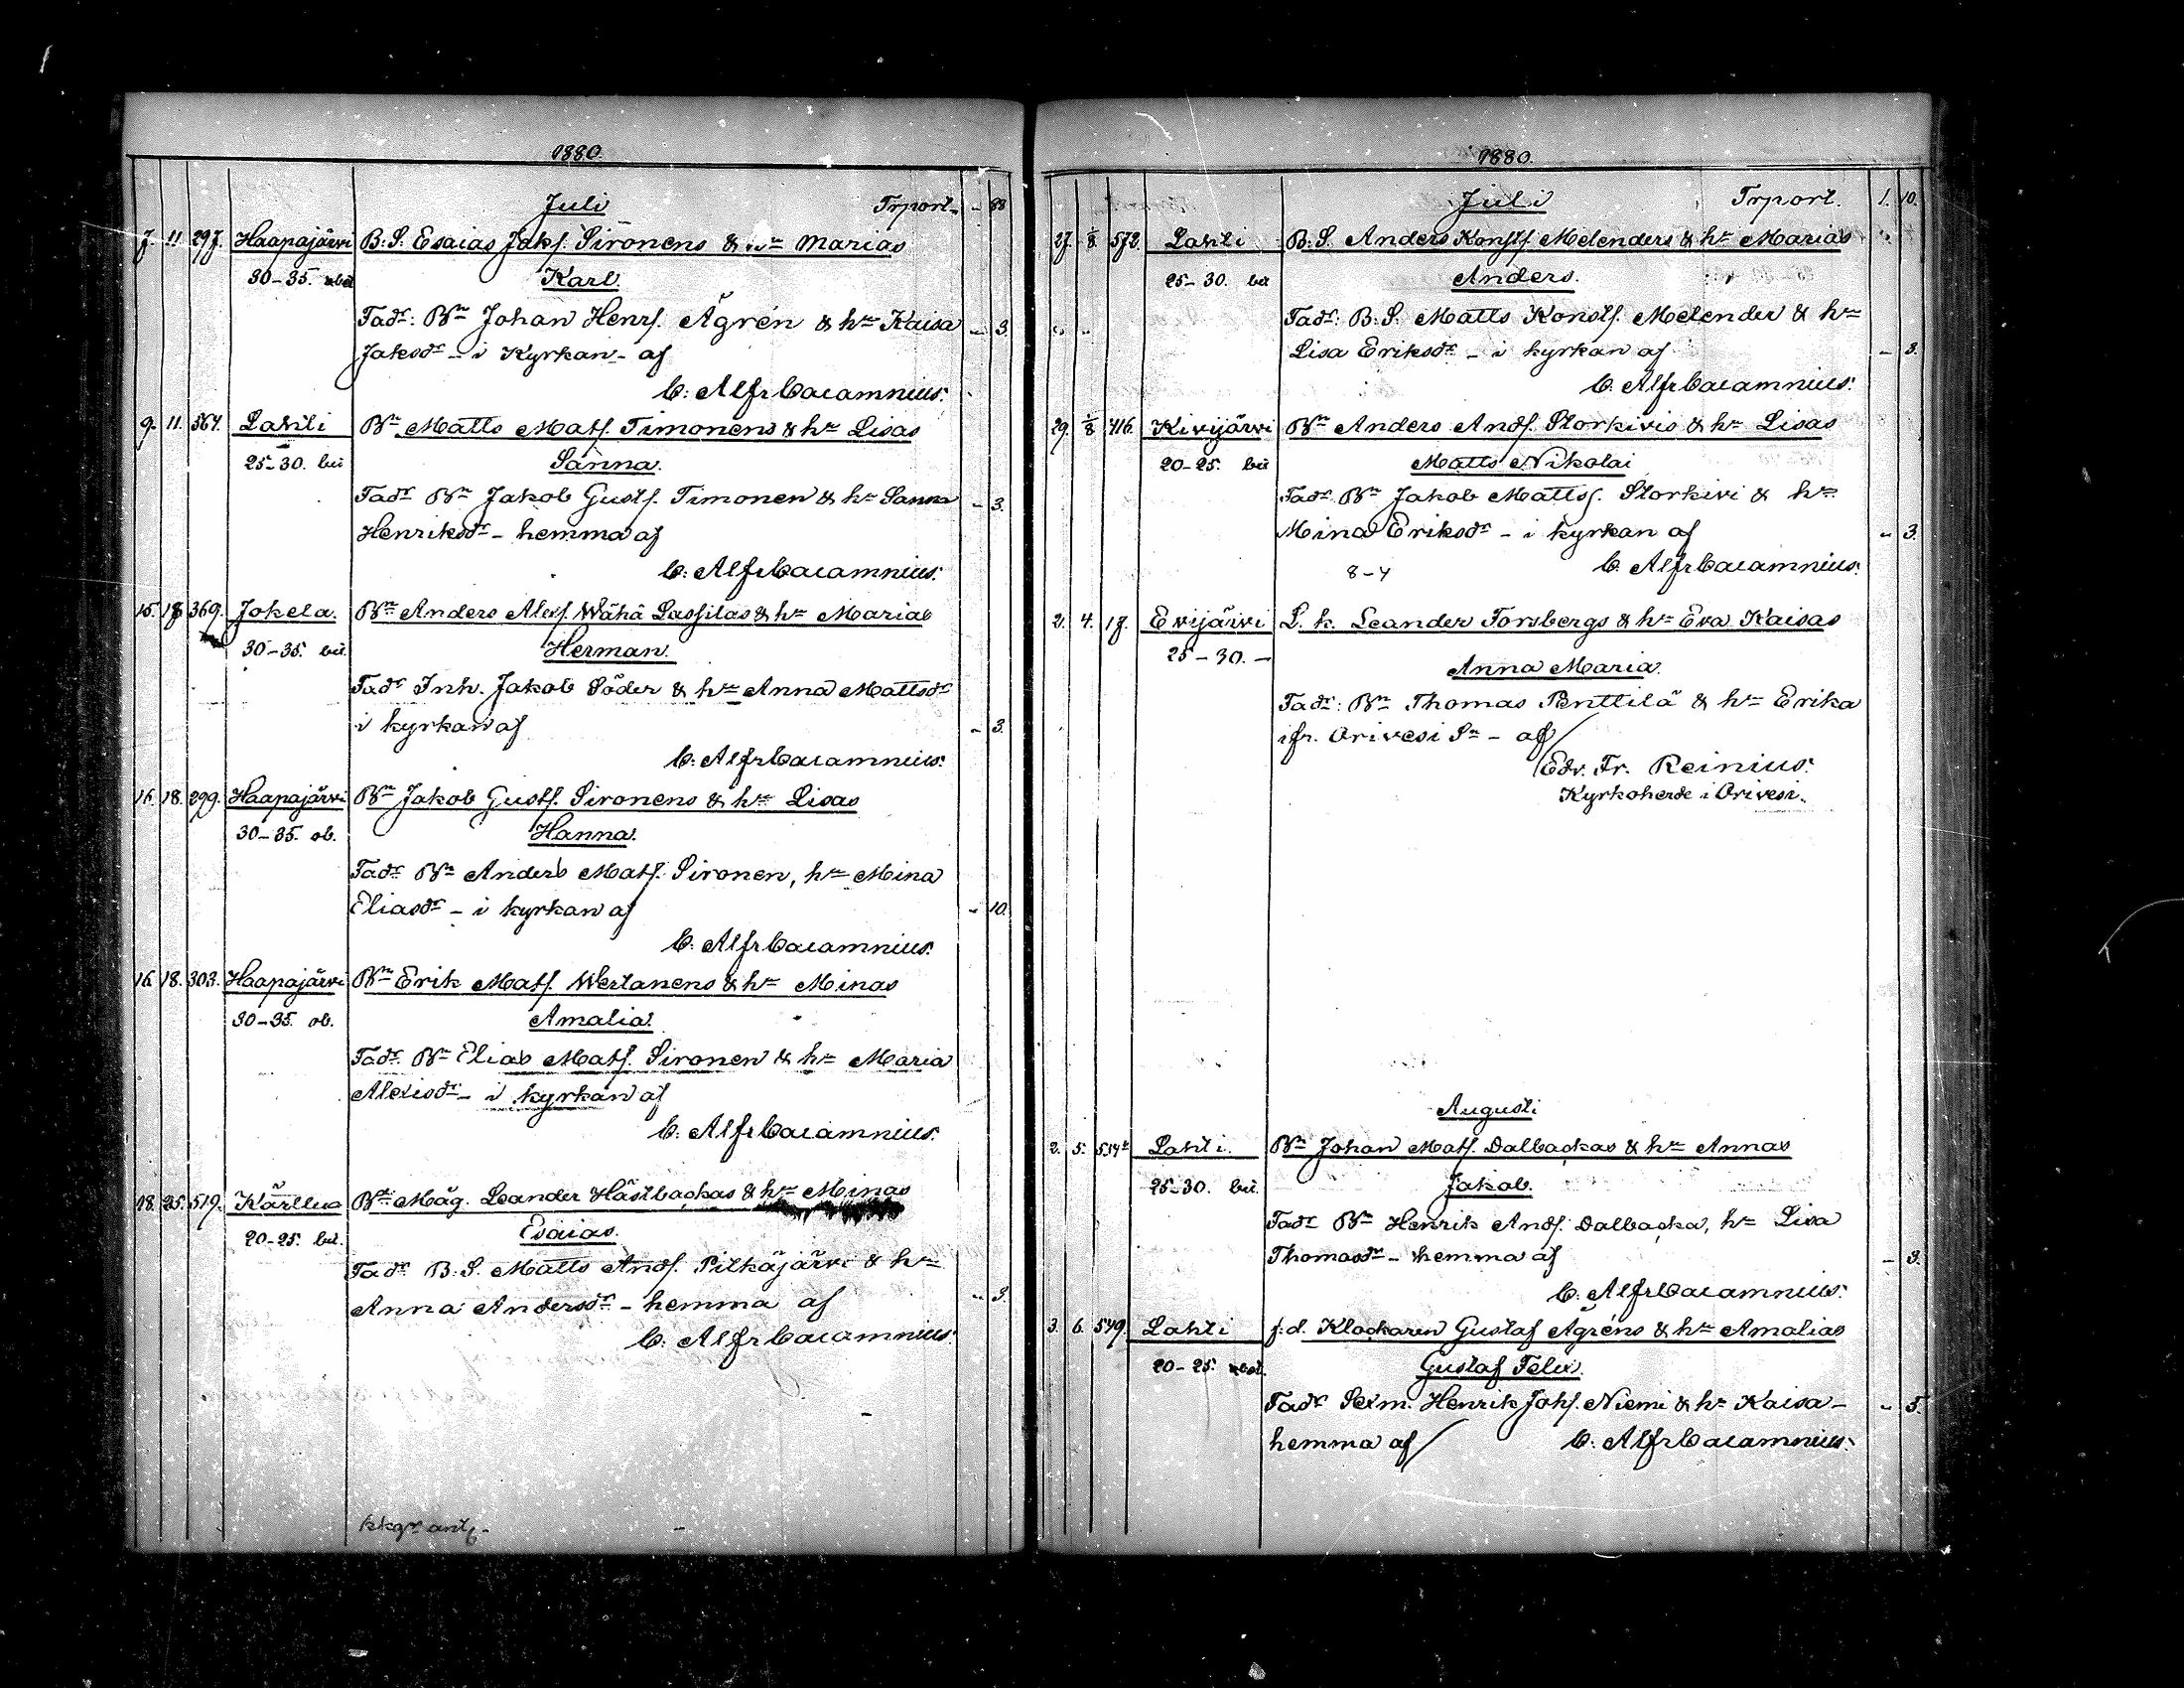 1880.
Juli Trport. - 88
7. 11. 297. Haapajärvi B.S. Esaias Jakſ. Sironens & hn Marias
30-35. Karl.
Fadr: Bn Johan Henrſ. Ågrén & hn Kaisa - 3.
Jaksdr - i Kyrkan - af
C. Alfr Cacamnius.
9. 11. 564. Lahti Bn Matts Matſ. Timonens & hn Lisas
25-30. Sanna.
Fadr Bn Jakob Gustſ. Timonen & hn Sanna - 3.
Henriksdr - hemma af
C. Alfr Cacamnius.
15. 18. 369. Jokela. Bn Anders Alexſ. Wähä Laſsilas & hn Marias
30-35. Herman.
Fadr Inh. Jakob Söder & hn Anna Mattsdr
i kyrkan af - 3.
C. Alfr Cacamnius.
16. 18. 299. Haapajärvi Bn Jakob Gustſ. Sironens & hn Lisas
30-35. ob. Hanna.
Fadr Bn Anders Matſ. Sironen, hn Mina
Eliasdr - i kyrkan af - 10.
C. Alfr Cacamnius.
16. 18. 303. Haapajärvi Bn Erik Matſ. Wertanens & hn Minas
30-35. ob. Amalia.
Fadr Bn Elias Matſ. Sironen & hn Maria
Alexisdr - i kyrkan af
C. Alfr Cacamnius.
18. 25. 519. Bn Måg. Leander Hästbackas & hn Minas
20-25. Esaias.
Fadr B.S. Matts Andſ. Pitkäjärvi & hn
Anna Andersdr - hemma af - 3.
C. Alfr Cacamnius.
1880.
Juli Trport. 1. 10.
27. 1/8 572. Lahti B.S. Anders Konstſ. Melenders & hn Marias
25-30. Anders.
Fadr: B.S. Matts Konstſ. Melender & hn
Lisa Eriksdr - i kyrkan af - 3.
C. Alfr Cacamnius.
29. 1/8 416. Kivijärvi Bn Anders Andſ. Storkivis & hn Lisas
20-25. Matts Nikolai
Fadr Bn Jakob Mattsſ. Storkivi & hn
Mina Eriksdr - i kyrkan af - 3.
8-4 C. Alfr Cacamnius.
2. 4. 17. Evijärvi L.k. Leander Forsbergs & hn Eva Kaisas
25-30. - Anna Maria.
Fadr: Bn Thomas Penttilä & hn Erika
ifr. Orivesi Sn - af
Edv. Fr. Reinius.
Kyrkoherde i Orivesi.
Augusti
2. 5. Lahti. Bn Johan Matſ. Dalbackas & hn Annas
25-30. Jakob.
Fadr Bn Henrik Andſ. Dalbacka, hn Lisa
Thomasdr - hemma af - 3.
C. Alfr Cacamnius.
3. 6. 549. Lahti f.d. Klockaren Gustaf Ågréns & hn Amalias
20-25. Gustaf Felix.
Fadr Sexm. Henrik Johſ. Niemi & hn Kaisa - - 5.
hemma af C. Alfr Cacamnius.